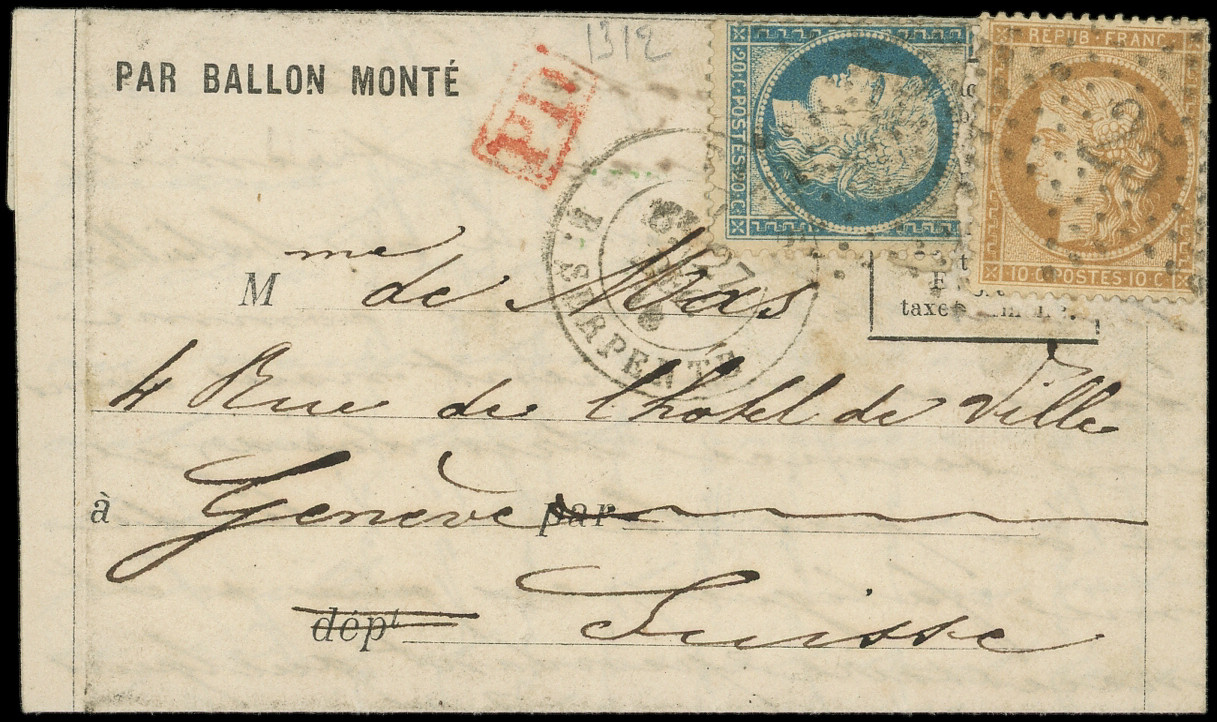 1312
PAR BALLON MONTÉ
P.P.
20·C·POSTES·20·C
RÉPUB·FRANC
10·C·POSTES·10·C
R. SERPENTE
27
Mme de Mas
taxe
4 Rue de l'hotel de Ville
à Genève par
dépt Suisse